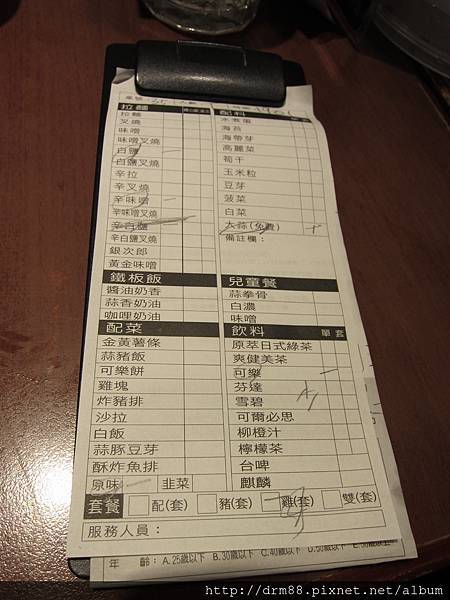 桌號：
拉麵
拉麵
叉燒
味噌
味噌叉燒
白鹽
白鹽叉燒
辛拉
辛叉燒
辛味噌
辛味噌叉燒
辛白鹽
辛白鹽叉燒
銀次郎
黃金味噌
鐵板飯
醬油奶香
蒜香奶油
咖哩奶油
配菜
金黃薯條
蒜豬飯
可樂餅
雞塊
炸豬排
沙拉
白飯
蒜豚豆芽
酥炸魚排
原味 韭菜
配料
水煮蛋
海苔
海帶芽
高麗菜
筍干
玉米粒
豆芽
菠菜
白菜
大蒜(免費)
備註欄：
兒童餐
蒜拳骨
白濃
味噌
飲料 單 套
原萃日式綠茶
爽健美茶
可樂
芬達
雪碧
可爾必思
柳橙汁
檸檬茶
台啤
麒麟
套餐 配(套) 豬(套) 雞(套) 雙(套)
服務人員：
年 齡： A.25歲以下 B.30歲以下 C.40歲以下 D.50歲以下
http://drm88.pixnet.net/album